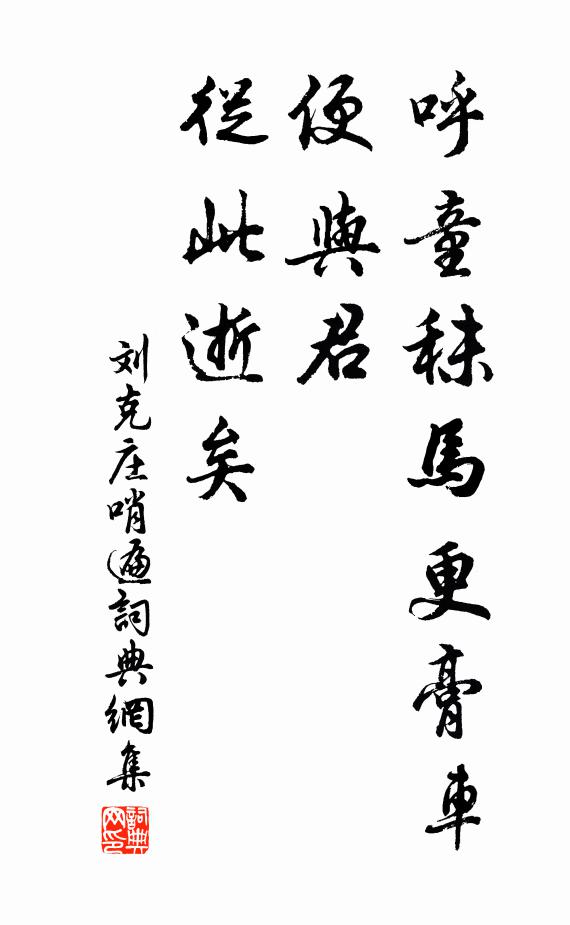 呼童秣馬更膏車
便與君
從此逝矣
刘克庄哨遍詞典網集
詞典网印